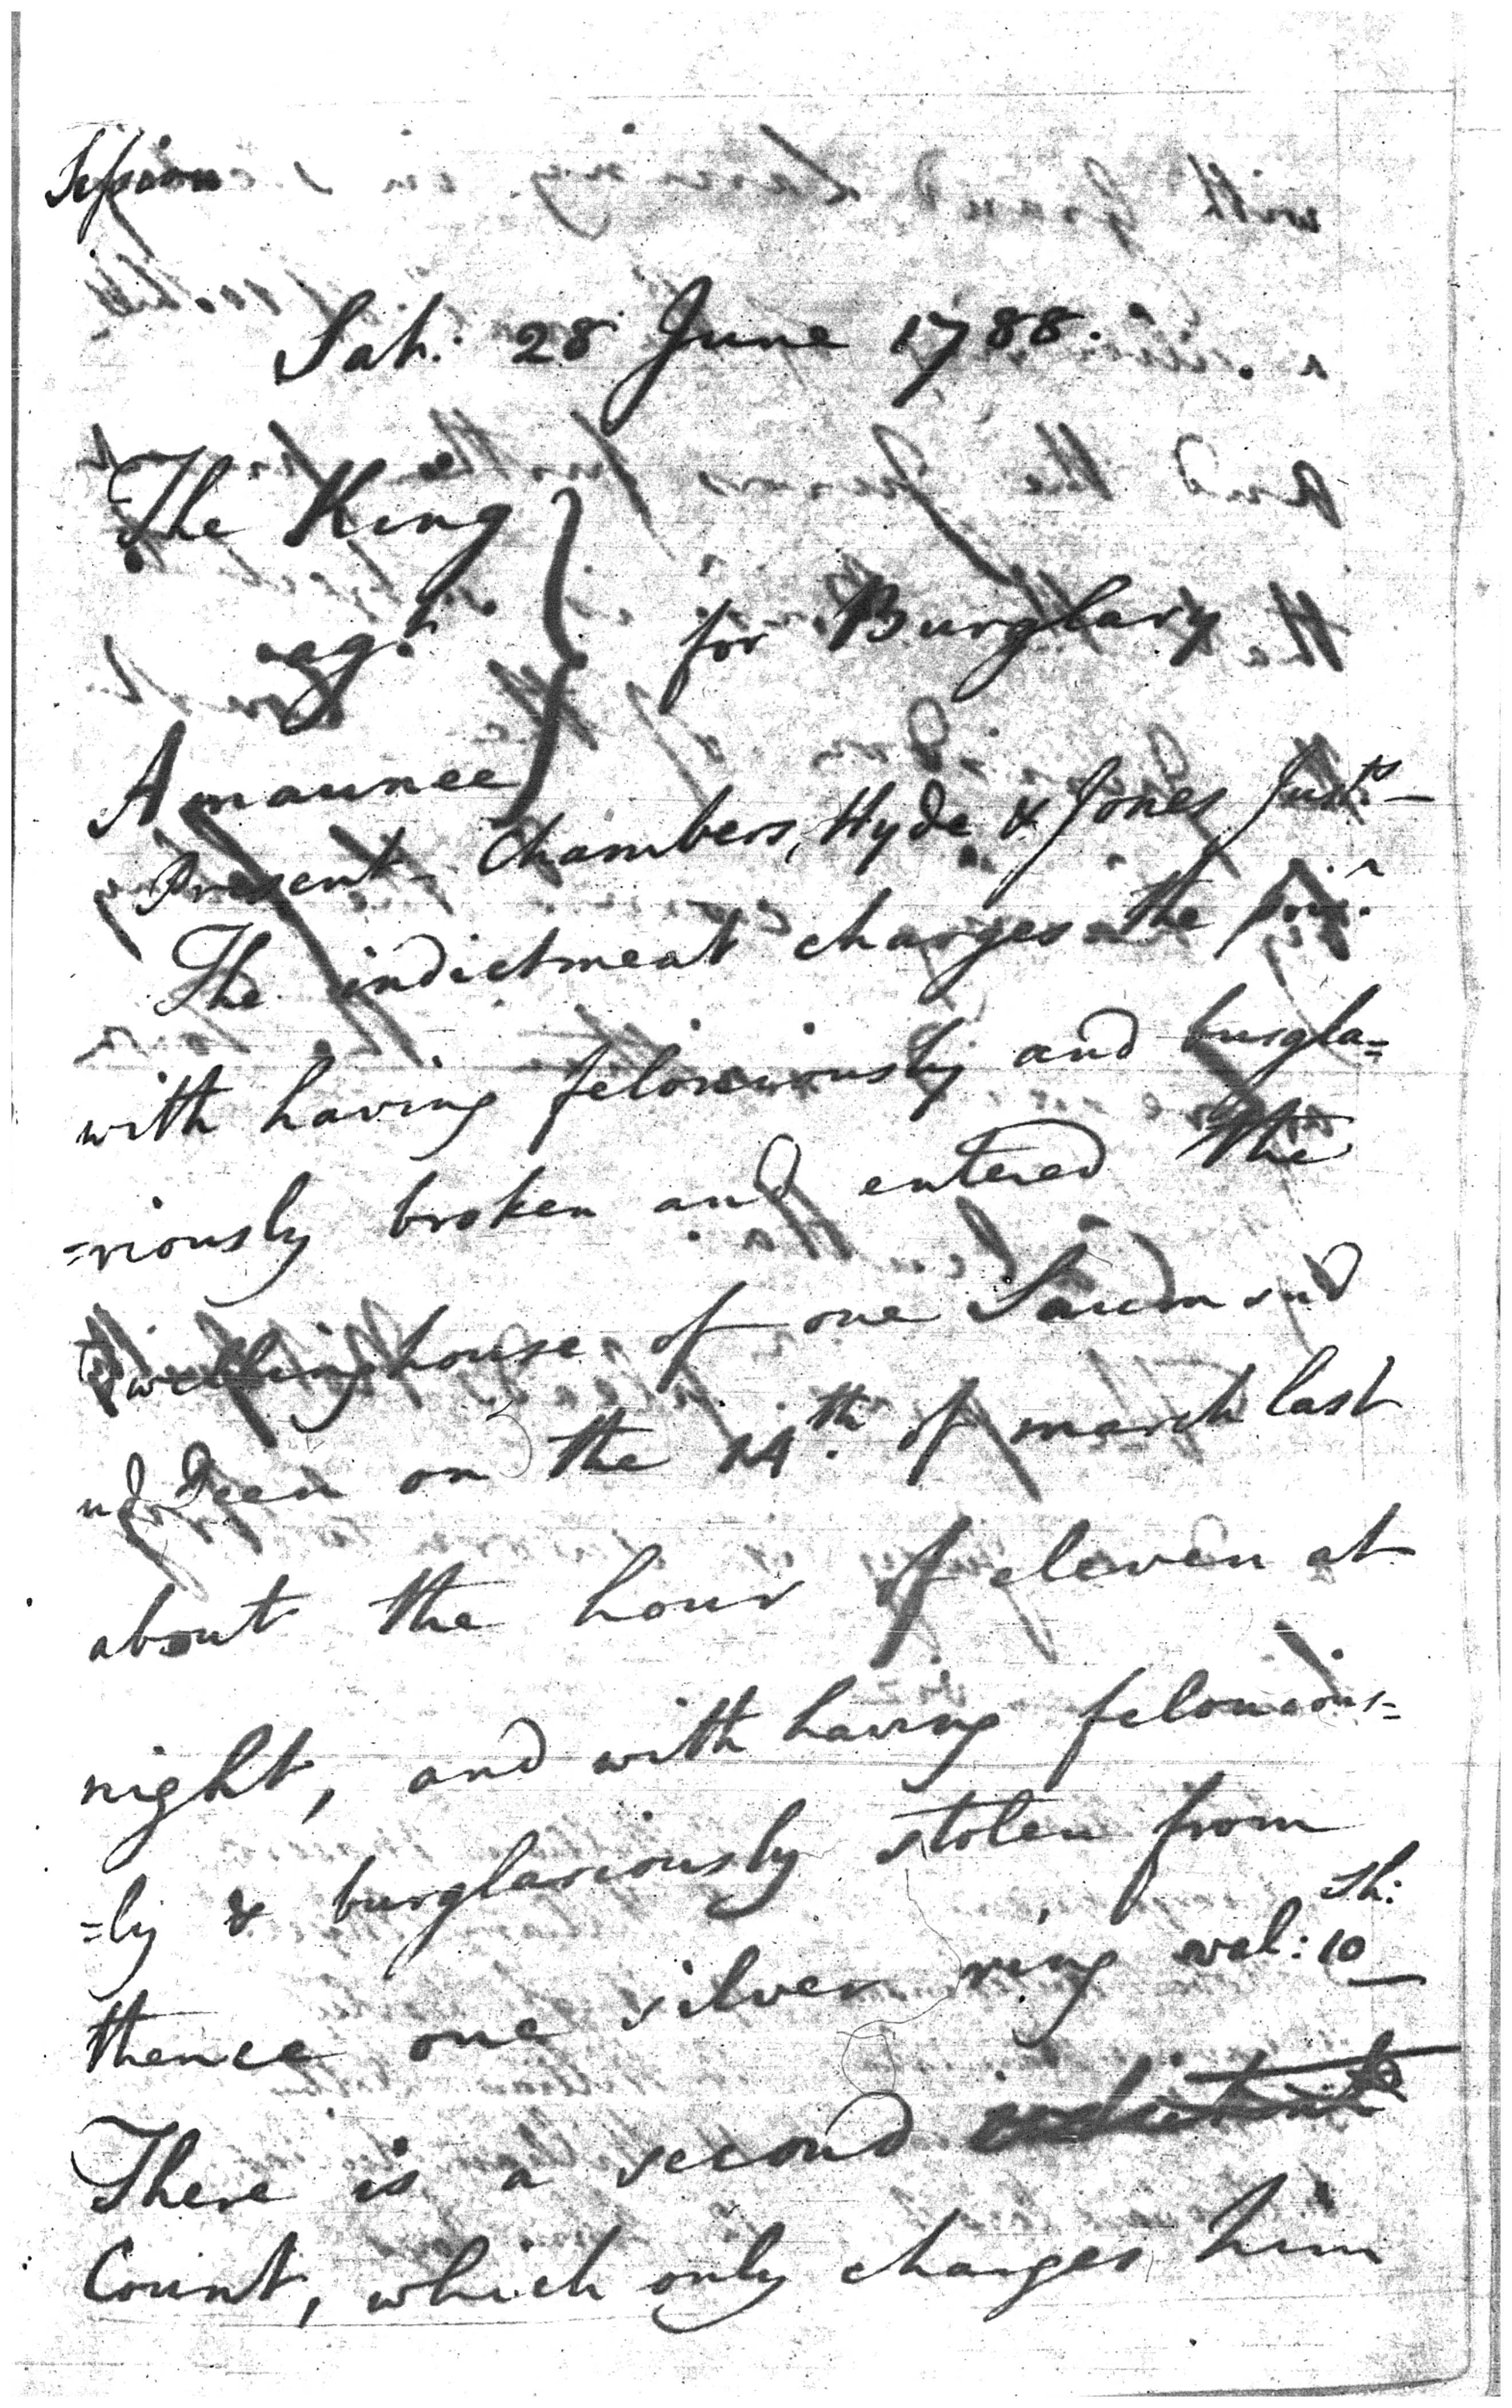 Session
Sat. 28 June 1788.
The King
agt.
for Burglary
Amaunee
Present Chambers, Hyde & Jones Justs
The indictment charges the prisr.
with having feloniously and burgla=
=riously broken and entered the
dwelling house of one
on the 14th. of march last
about the hour of eleven at
night, and with having felonious=
=ly & burglariously stolen from
thence one silver ring val: 10 Sh:
There is a second
Count, which only charges him